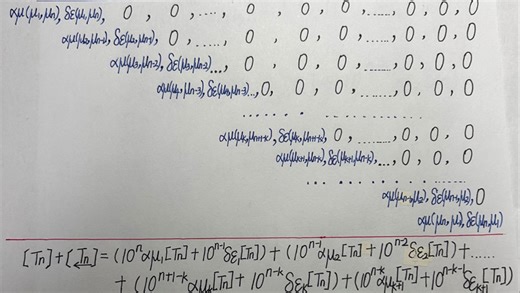 αμ(μ₁,μₙ), δε(μ₁,μₙ), 0 , 0 , ...., 0 , 0 , 0 , ......, 0 , 0 , 0
αμ(μ₂,μₙ₋₁), δε(μ₂,μₙ₋₁), 0 , ....., 0 , 0 , 0 , ......, 0 , 0 , 0
αμ(μ₃,μₙ₋₂), δε(μ₃,μₙ₋₂)..., 0 , 0 , 0 , ......, 0 , 0 , 0
αμ(μ₄,μₙ₋₃), δε(μ₄,μₙ₋₃)..., 0 , 0 , 0 , ......, 0 , 0 , 0
αμ(μₖ,μₙ₊₁₋ₖ), δε(μₖ,μₙ₊₁₋ₖ), 0 , ......, 0 , 0 , 0
αμ(μₖ₊₁,μₙ₋ₖ), δε(μₖ₊₁,μₙ₋ₖ), ..., 0 , 0 , 0
αμ(μₙ₋₁,μ₂), δε(μₙ₋₁,μ₂), 0
αμ(μₙ,μ₁), δε(μₙ,μ₁)
[Tn] + [Tn] = (10ⁿαμ₁[Tn] + 10ⁿ⁻¹δε₁[Tn]) + (10ⁿ⁻¹αμ₂[Tn] + 10ⁿ⁻²δε₂[Tn]) + ......
+ (10ⁿ⁺¹⁻ᵏαμₖ[Tn] + 10ⁿ⁻ᵏδεₖ[Tn]) + (10ⁿ⁻ᵏαμₖ₊₁[Tn] + 10ⁿ⁻ᵏ⁻¹δεₖ₊₁[Tn])